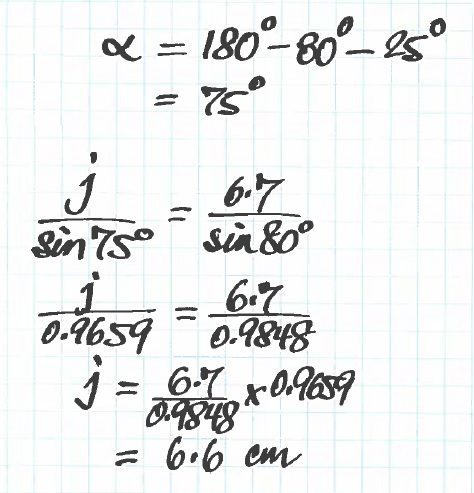 α = 180° - 80° - 25°
= 75°
j/sin 75° = 6.7/sin 80°
j/0.9659 = 6.7/0.9848
j = 6.7/0.9848 x 0.9659
= 6.6 cm